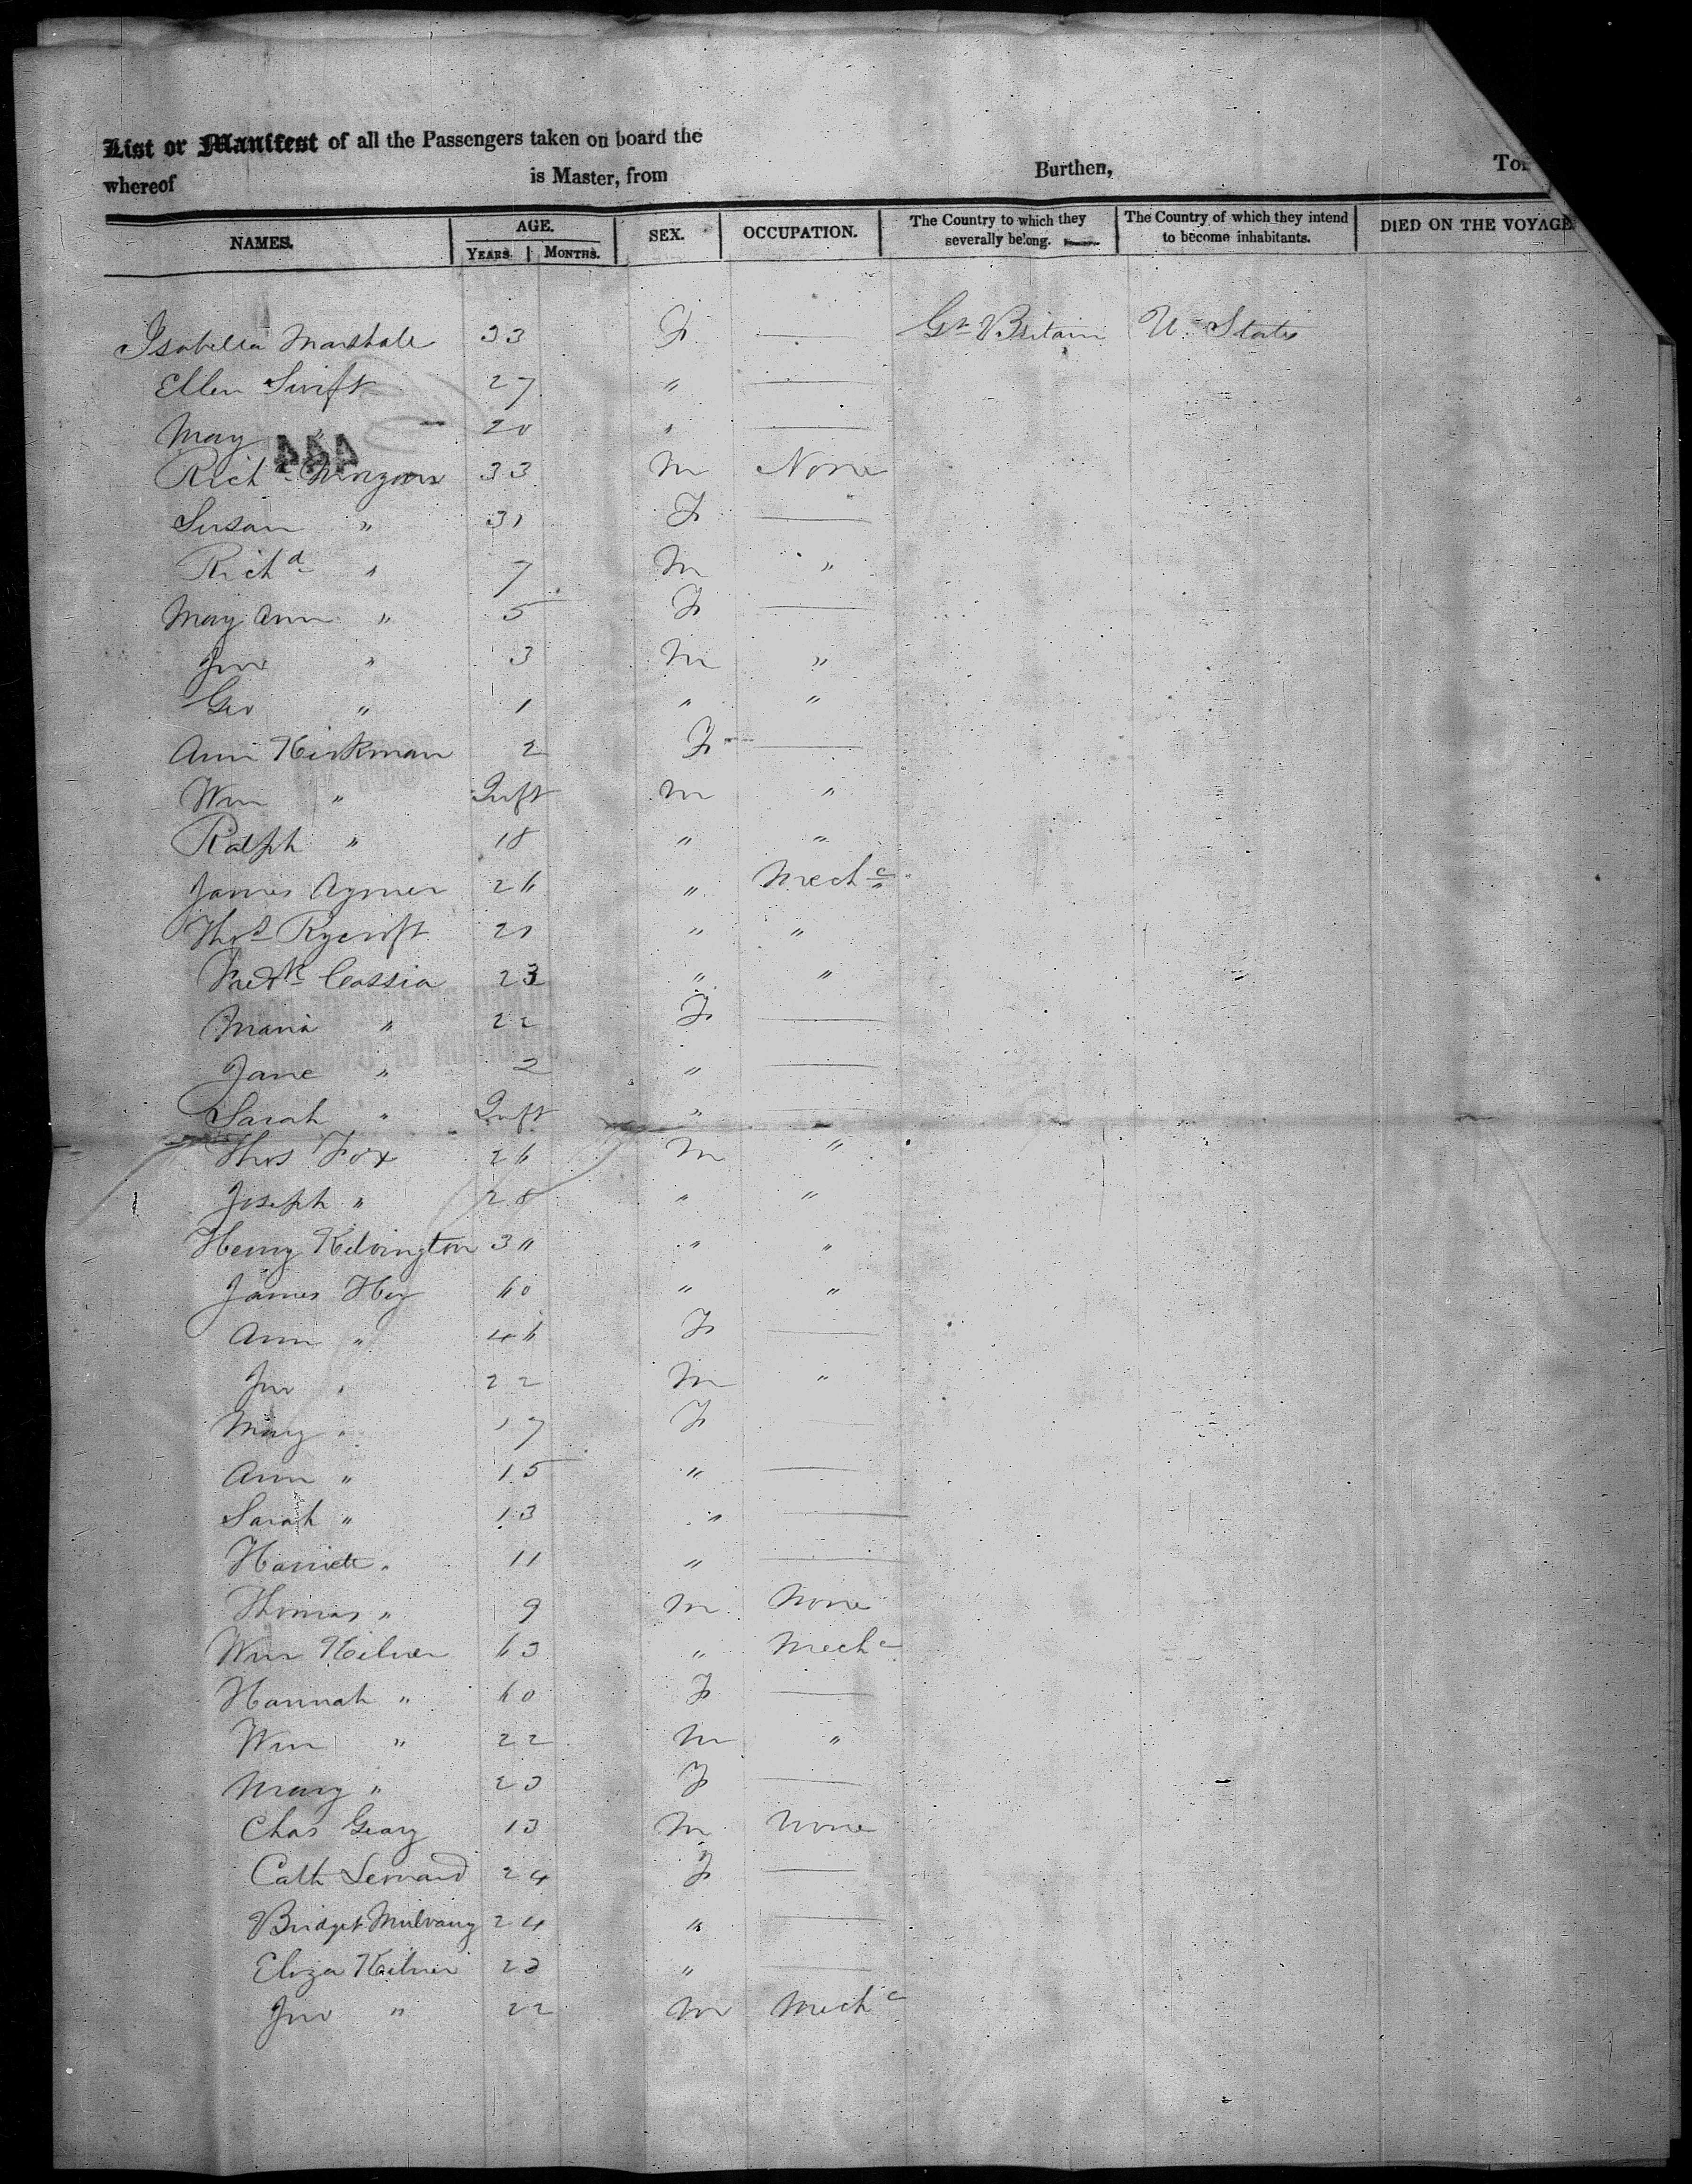 List or Manifest of all the Passengers taken on board the
whereof is Master, from Burthen, Ton
NAMES. AGE. SEX. OCCUPATION. The Country to which they severally belong. The Country of which they intend to become inhabitants. DIED ON THE VOYAGE
YEARS. MONTHS.
Isabella Marshall 33 F — Gt Britain U. States
Ellen Swift 27 " —
May " 20 " —
444
Richd 33 M None
Susan " 31 F —
Richd " 7 M "
May Ann " 5 F —
Jno " 3 M "
Geo " 1 " "
Ann Kirkman 2 F —
Wm " Inft M "
Ralph " 18 " "
James Aymer 26 " Mechc
Thos Rycroft 21 " "
Fredk Cassia 23 " "
Maria " 22 F —
Jane " 2 " —
Sarah " Inft " —
Thos Fox 26 M "
Joseph " 28 " "
Henry Kilvington " "
James Hey 60 " "
Ann " 46 F —
Jno " 22 M "
Mary " 17 F —
Ann " 15 " —
Sarah " 13 " —
Harriett " 11 " —
Thomas " 9 M None
Wm Kilner 63 " Mechc
Hannah " 60 F —
Wm " 22 M "
Mary " 23 F —
Chas Geary 13 M None
Cath Lennard 24 F —
Bridget Mulvany 24 " —
Eliza Kilner 23 " —
Jno " 22 M Mechc